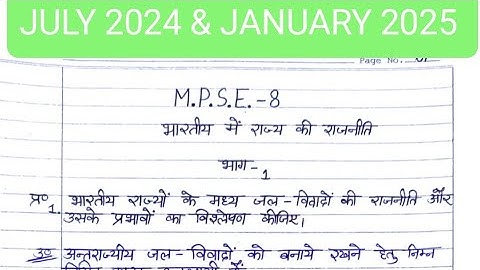 JULY 2024 & JANUARY 2025
Page No.
M.P.S.E.-8
भारतीय में राज्य की राजनीति
भाग-1
प्र० 1. भारतीय राज्यों के मध्य जल-विवादों की राजनीति और
उसके प्रभावों का विश्लेषण कीजिए।
उ० अन्तराज्यीय जल-विवादों को बनाये रखने हेतु निम्न